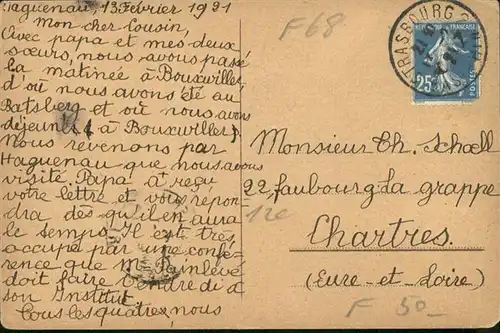 Haguenau, 13 Febrier 1921
Mon cher Cousin,
Avec papa et mes deux
sœurs, nous avons passé
la matinée à Bouxwiller
d'où nous avons été au
Batsberg et où nous avons
déjeuné (à Bouxwiller).
Nous revenons par
Haguenau que nous avons
visité. Papa a reçu
votre lettre et vous répon
dra dès qu'il en aura
le temps. Il est très
occupé par une confé-
rence que M. Painlevé
doit faire Vendredi à
son Institut.
Tous les quatre, nous
F68
STRASBOURG
25c
POSTES
Monsieur Ch. Schoell
22, faubourg la grappe
12e
Chartres.
(Eure-et-Loire)
F 50-